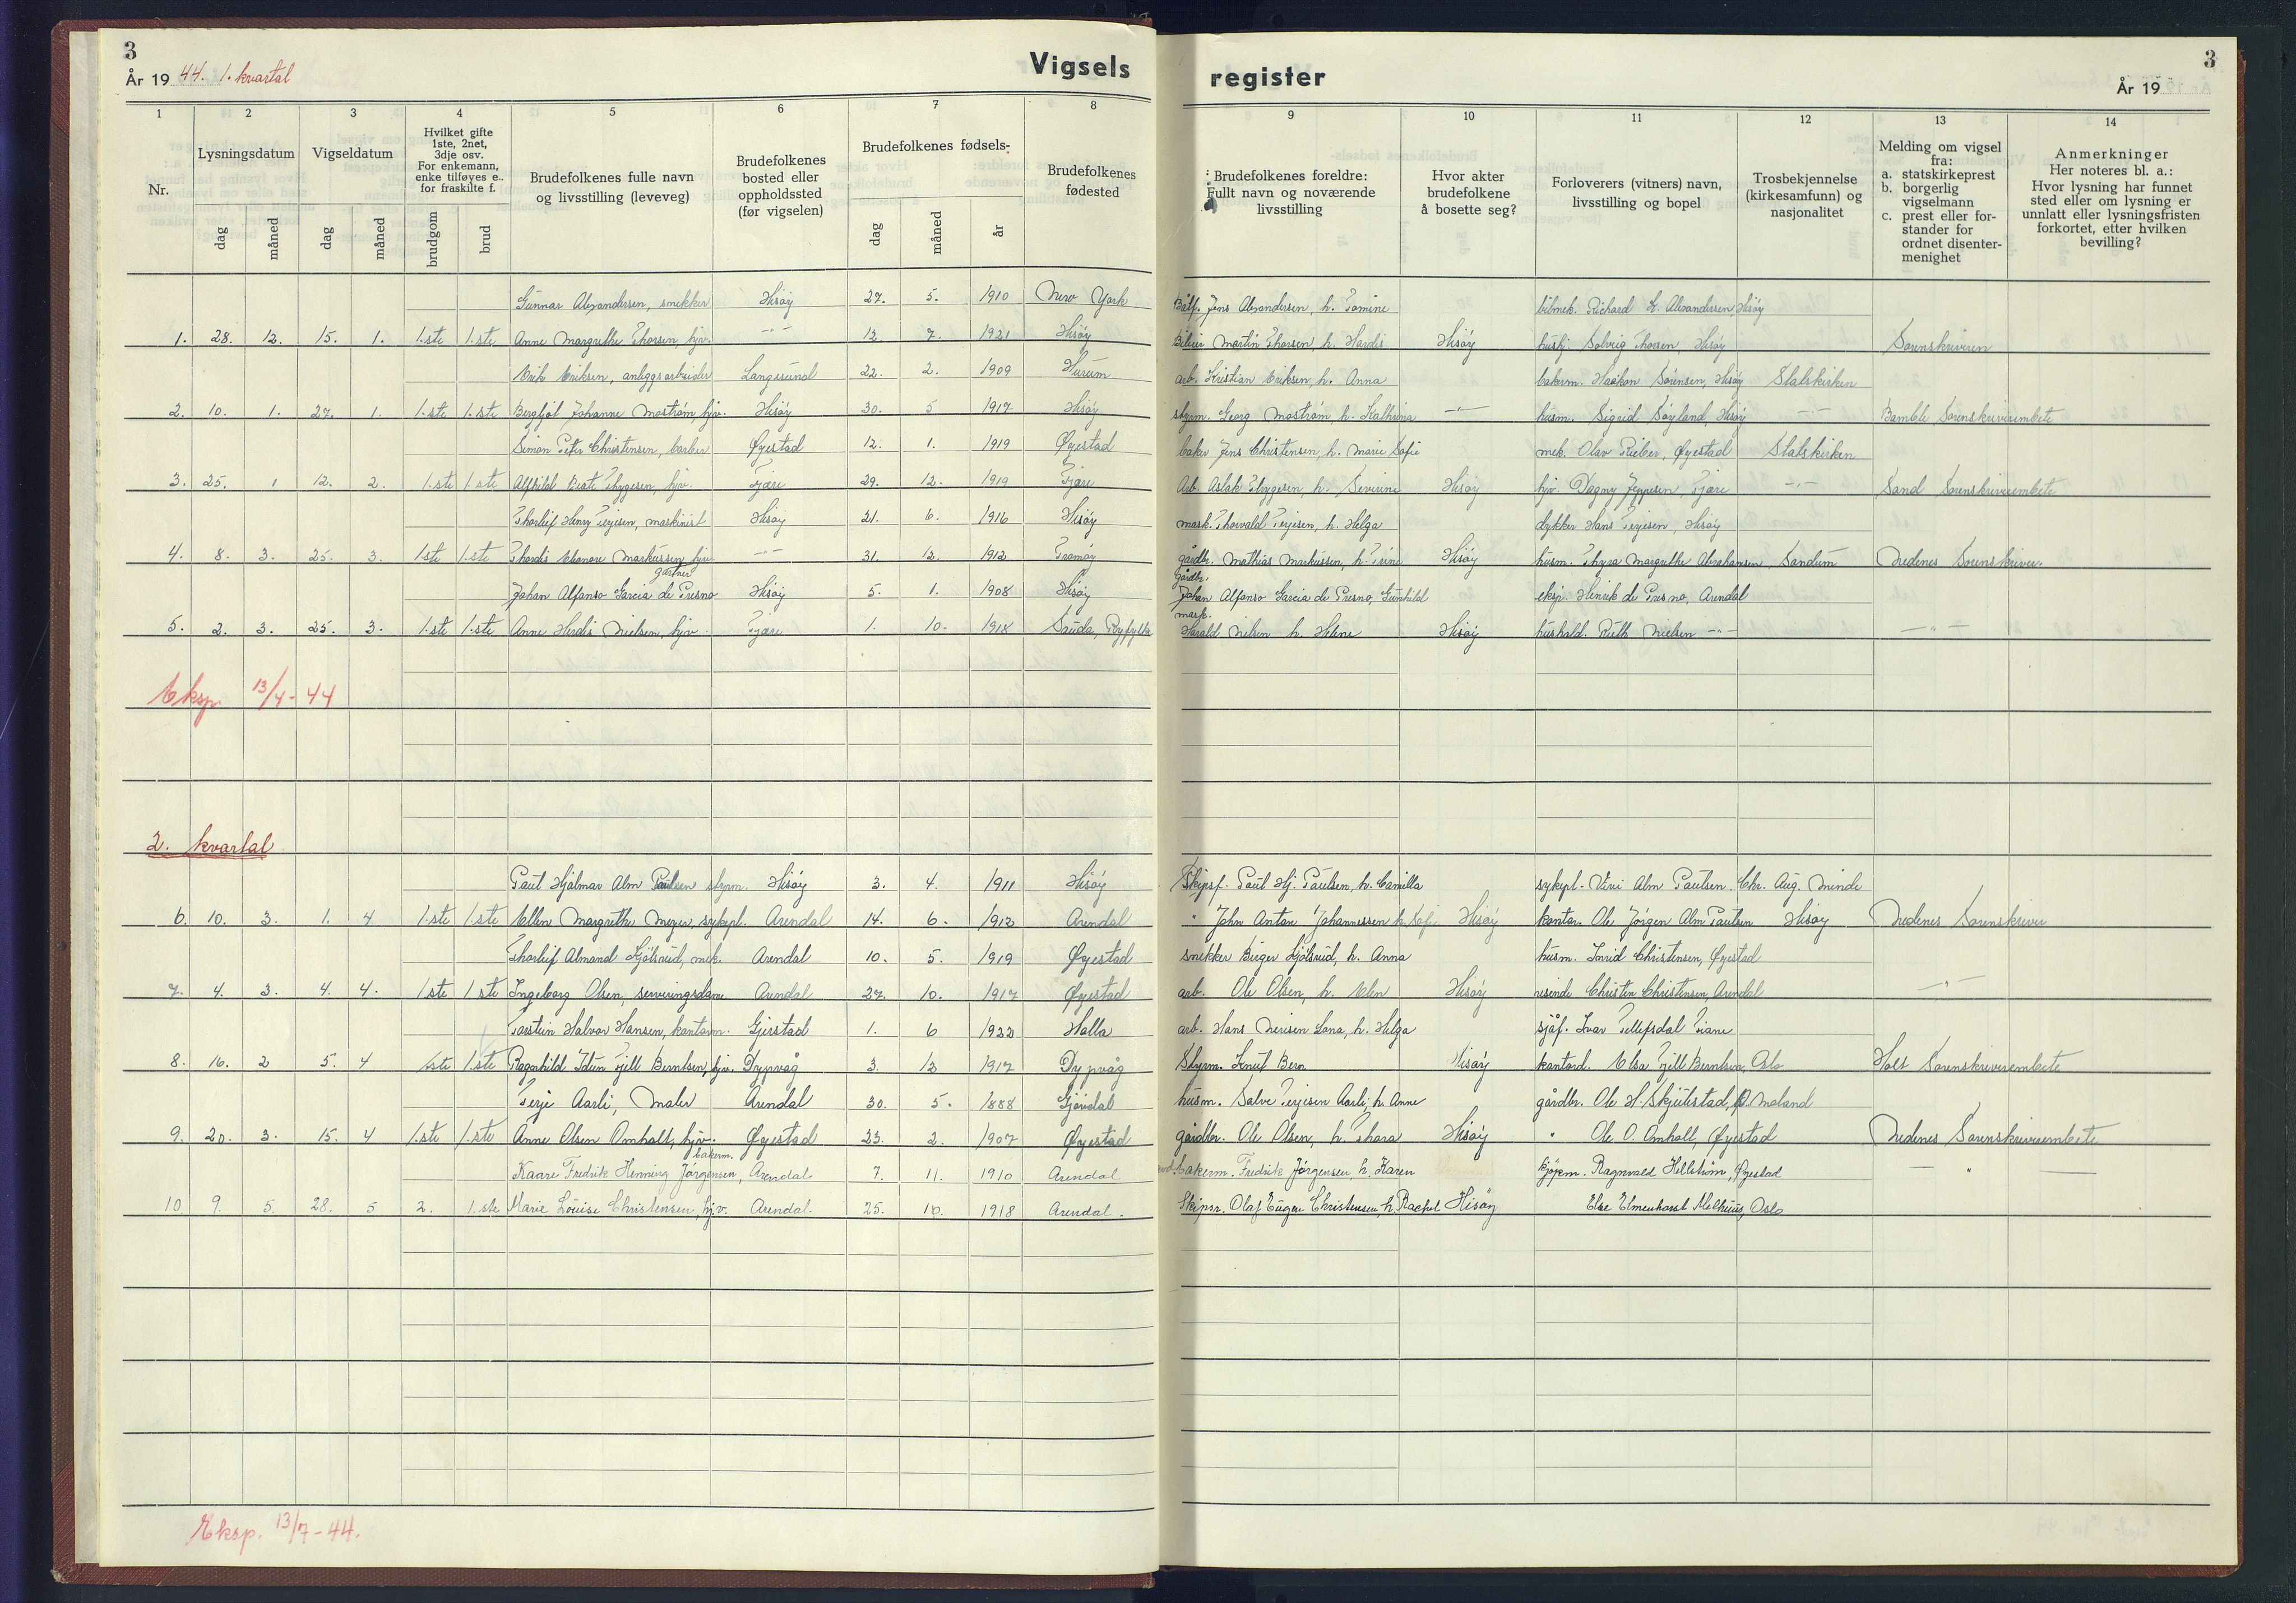 3
År 19 44. 1. kvartal
Vigsels
register
År 19
3
1 2 3 4 5 6 7 8
9 10 11 12 13 14
Nr.
Lysningsdatum
dag måned
Vigseldatum
dag måned
Hvilket gifte
1ste, 2net,
3dje osv.
For enkemann,
enke tilføyes e..
for fraskilte f.
brudgom brud
Brudefolkenes fulle navn
og livsstilling (leveveg)
Brudefolkenes
bosted eller
oppholdssted
(før vigselen)
Brudefolkenes fødsels-
dag måned år
Brudefolkenes
fødested
Brudefolkenes foreldre:
Fullt navn og noværende
livsstilling
Hvor akter
brudefolkene
å bosette seg?
Forloverers (vitners) navn,
livsstilling og bopel
Trosbekjennelse
(kirkesamfunn) og
nasjonalitet
Melding om vigsel
fra:
a. statskirkeprest
b. borgerlig
vigselmann
c. prest eller for-
stander for
ordnet disenter-
menighet
Anmerkninger
Her noteres bl. a.:
Hvor lysning har funnet
sted eller om lysning er
unnlatt eller lysningsfristen
forkortet, etter hvilken
bevilling?
Gunnar Alexandersen, snekker Hisøy 27. 5. 1910 New York Jens Alexandersen, h. Tomine bilmek. Richard K. Alexandersen, Hisøy
1. 28. 12. 15. 1. 1.ste 1.ste Anne Margrethe Thorsen, hjv. -"- 12. 7. 1921 Hisøy Martin Thorsen, h. Hardis Hisøy hushj. Solveig Thorsen, Hisøy Sorenskriveren
Erik Eriksen, anleggsarbeider Langesund 22. 2. 1909 Hurum arb. Kristian Eriksen, h. Anna bakerm. Haakon Sørensen, Hisøy Statskirken
2. 10. 1. 27. 1. 1.ste 1.ste Bergljot Johanne Mostrøm, hjv. Hisøy 30. 5 1917 Hisøy styrm. Georg Mostrøm, h. Kathrine -"- husm. Sigrid Søyland, Hisøy -"- Bamble Sorenskriverembete
Simon Peter Christensen, barber Øyestad 12. 1. 1919 Øyestad baker Jens Christensen, h. Marie Sofie mek. Olav Rieber, Øyestad Statskirken
3. 25. 1 12. 2. 1.ste 1.ste Alfhild Beate Thygesen, hjv. Fjære 29. 12. 1919 Fjære Arb. Aslak Thygesen, h. Severine Hisøy hjv. Dagny Jeppesen, Fjære -"- Sand Sorenskriverembete
Thorleif Henry Terjesen, maskinist Hisøy 21. 6. 1916 Hisøy mask. Thorvald Terjesen, h. Helga dykker Hans Terjesen, Hisøy
4. 8. 3. 25. 3. 1.ste 1.ste Thordis Eleonore Markussen, hjv. -"- 31. 12. 1912 Tromøy gårdbr. Mathias Markussen, h. Trine Hisøy husm. Thyra Margrethe Abrahamsen, Sandum Nedenes Sorenskriver.
gartner
gårdbr.
Johan Alfonso Garcia de Presno Hisøy 5. 1. 1908 Hisøy Johan Alfonso Garcia de Presno, Gunhild eksp. Henrik de Presno, Arendal
mask.
5. 2. 3. 25. 3. 1.ste 1.ste Anne Herdis Nielsen, hjv. Fjære 1. 10. 1918 Sauda, Ryfylke Harald Nilsen h. Helene Hisøy hushold. Ruth Nielsen -"- -"-
Eksp. 13/4-44
2. kvartal
Paul Hjalmar Alm Paulsen styrm. Hisøy 3. 4. 1911 Hisøy Skipsf. Paul Hj. Paulsen, h. Camilla sykepl. Vivi Alm Paulsen. Chr. Aug. minde
6. 10. 3. 1. 4 1.ste 1.ste Ellen Margrethe Meyer, sykepl. Arendal 14. 6. 1912 Arendal " John Anton Johannessen h. Sofi Hisøy kontor. Ole Jørgen Alm Paulsen Hisøy Nedenes Sorenskriver
Thorleif Almand Kjølsrud, mek. Arendal 10. 5. 1919 Øyestad snekker Birger Kjølsrud, h. Anna husm. Inrid Christensen, Øyestad
7. 4. 3. 4. 4. 1.ste 1.ste Ingeborg Olsen, serveringsdame Arendal 27. 10. 1917 Øyestad arb. Ole Olsen, h. Elen Hisøy reisende Christen Christensen, Arendal -"-
Torstein Halvor Hansen, kontorm. Gjerstad 1. 6 1922 Holla arb. Hans Lona, h. Helga sjåf. Ivar Tellefsdal Tiane
8. 16. 2 5. 4 1.ste 1.ste Ragnhild Idun Fjell Berntsen, hjv. Dypvåg 3. 12 1917 Dypvåg Styrm. Knut Hisøy kontord. Elsa Fjell Berntsen, Oslo Holt Sorenskriverembete
Terje Aarli, Maler Arendal 30. 5. 1888 Gjøvdal husm. Salve Terjesen Aarli, h. Anne gårdbr. Ole H. Skjulestad, Ø. Moland
9. 20. 3. 15. 4 1.ste 1.ste Anne Olsen Omholt, hjv. Øyestad 23. 2. 1907 Øyestad gårdbr. Ole Olsen, h. Thora Hisøy " Ole O. Omholt, Øyestad Nedenes Sorenskriverembete
bakerm.
Kaare Fredrik Henning Jørgensen, Arendal 7. 11. 1910 Arendal. bakerm. Fredrik Jørgensen, h. Karen kjøpm. Ragnvald Hellstrøm, Øyestad — " —
10 9. 5. 28. 5 2. 1.ste Marie Louise Christensen, hjv. Arendal. 25. 10. 1918 Arendal. Skipsr. Olaf Eugen Christensen, h. Rachel Hisøy Else Elmenhorst Melhuus, Oslo
Eksp. 13/7-44.